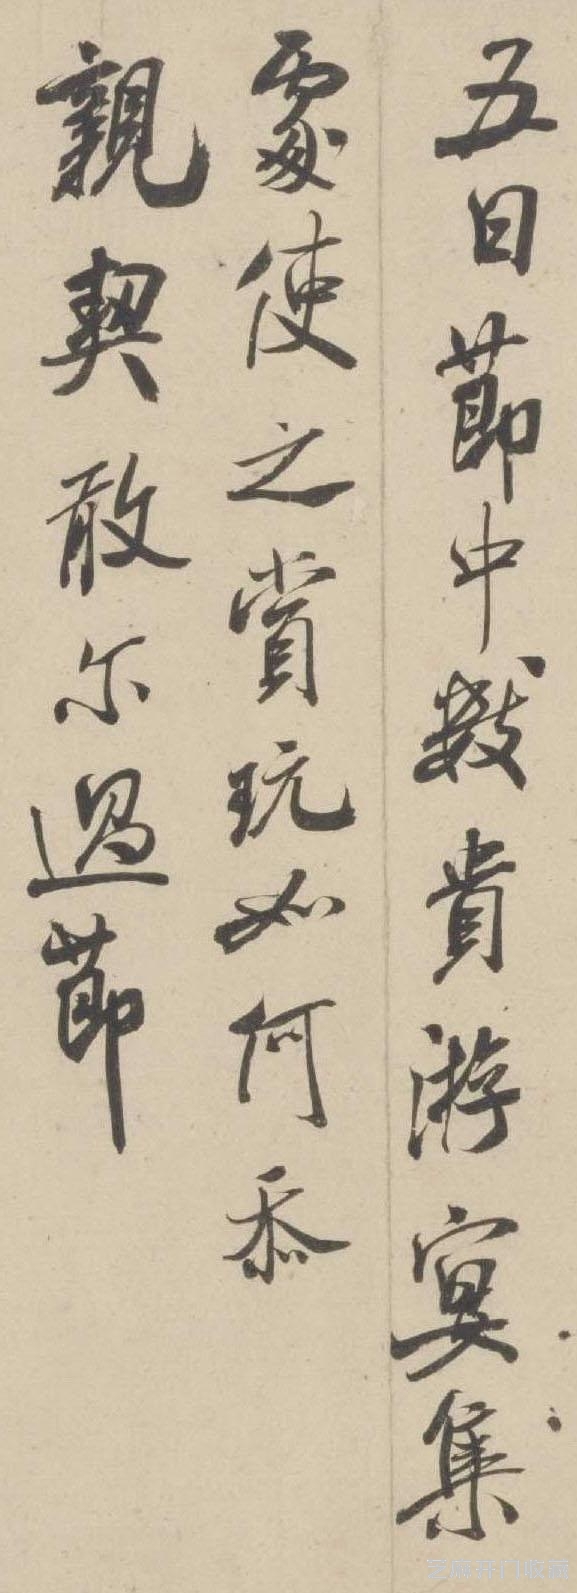 五日節中数貴游宴集
處使之賞玩如何忝
親契敢尔過節